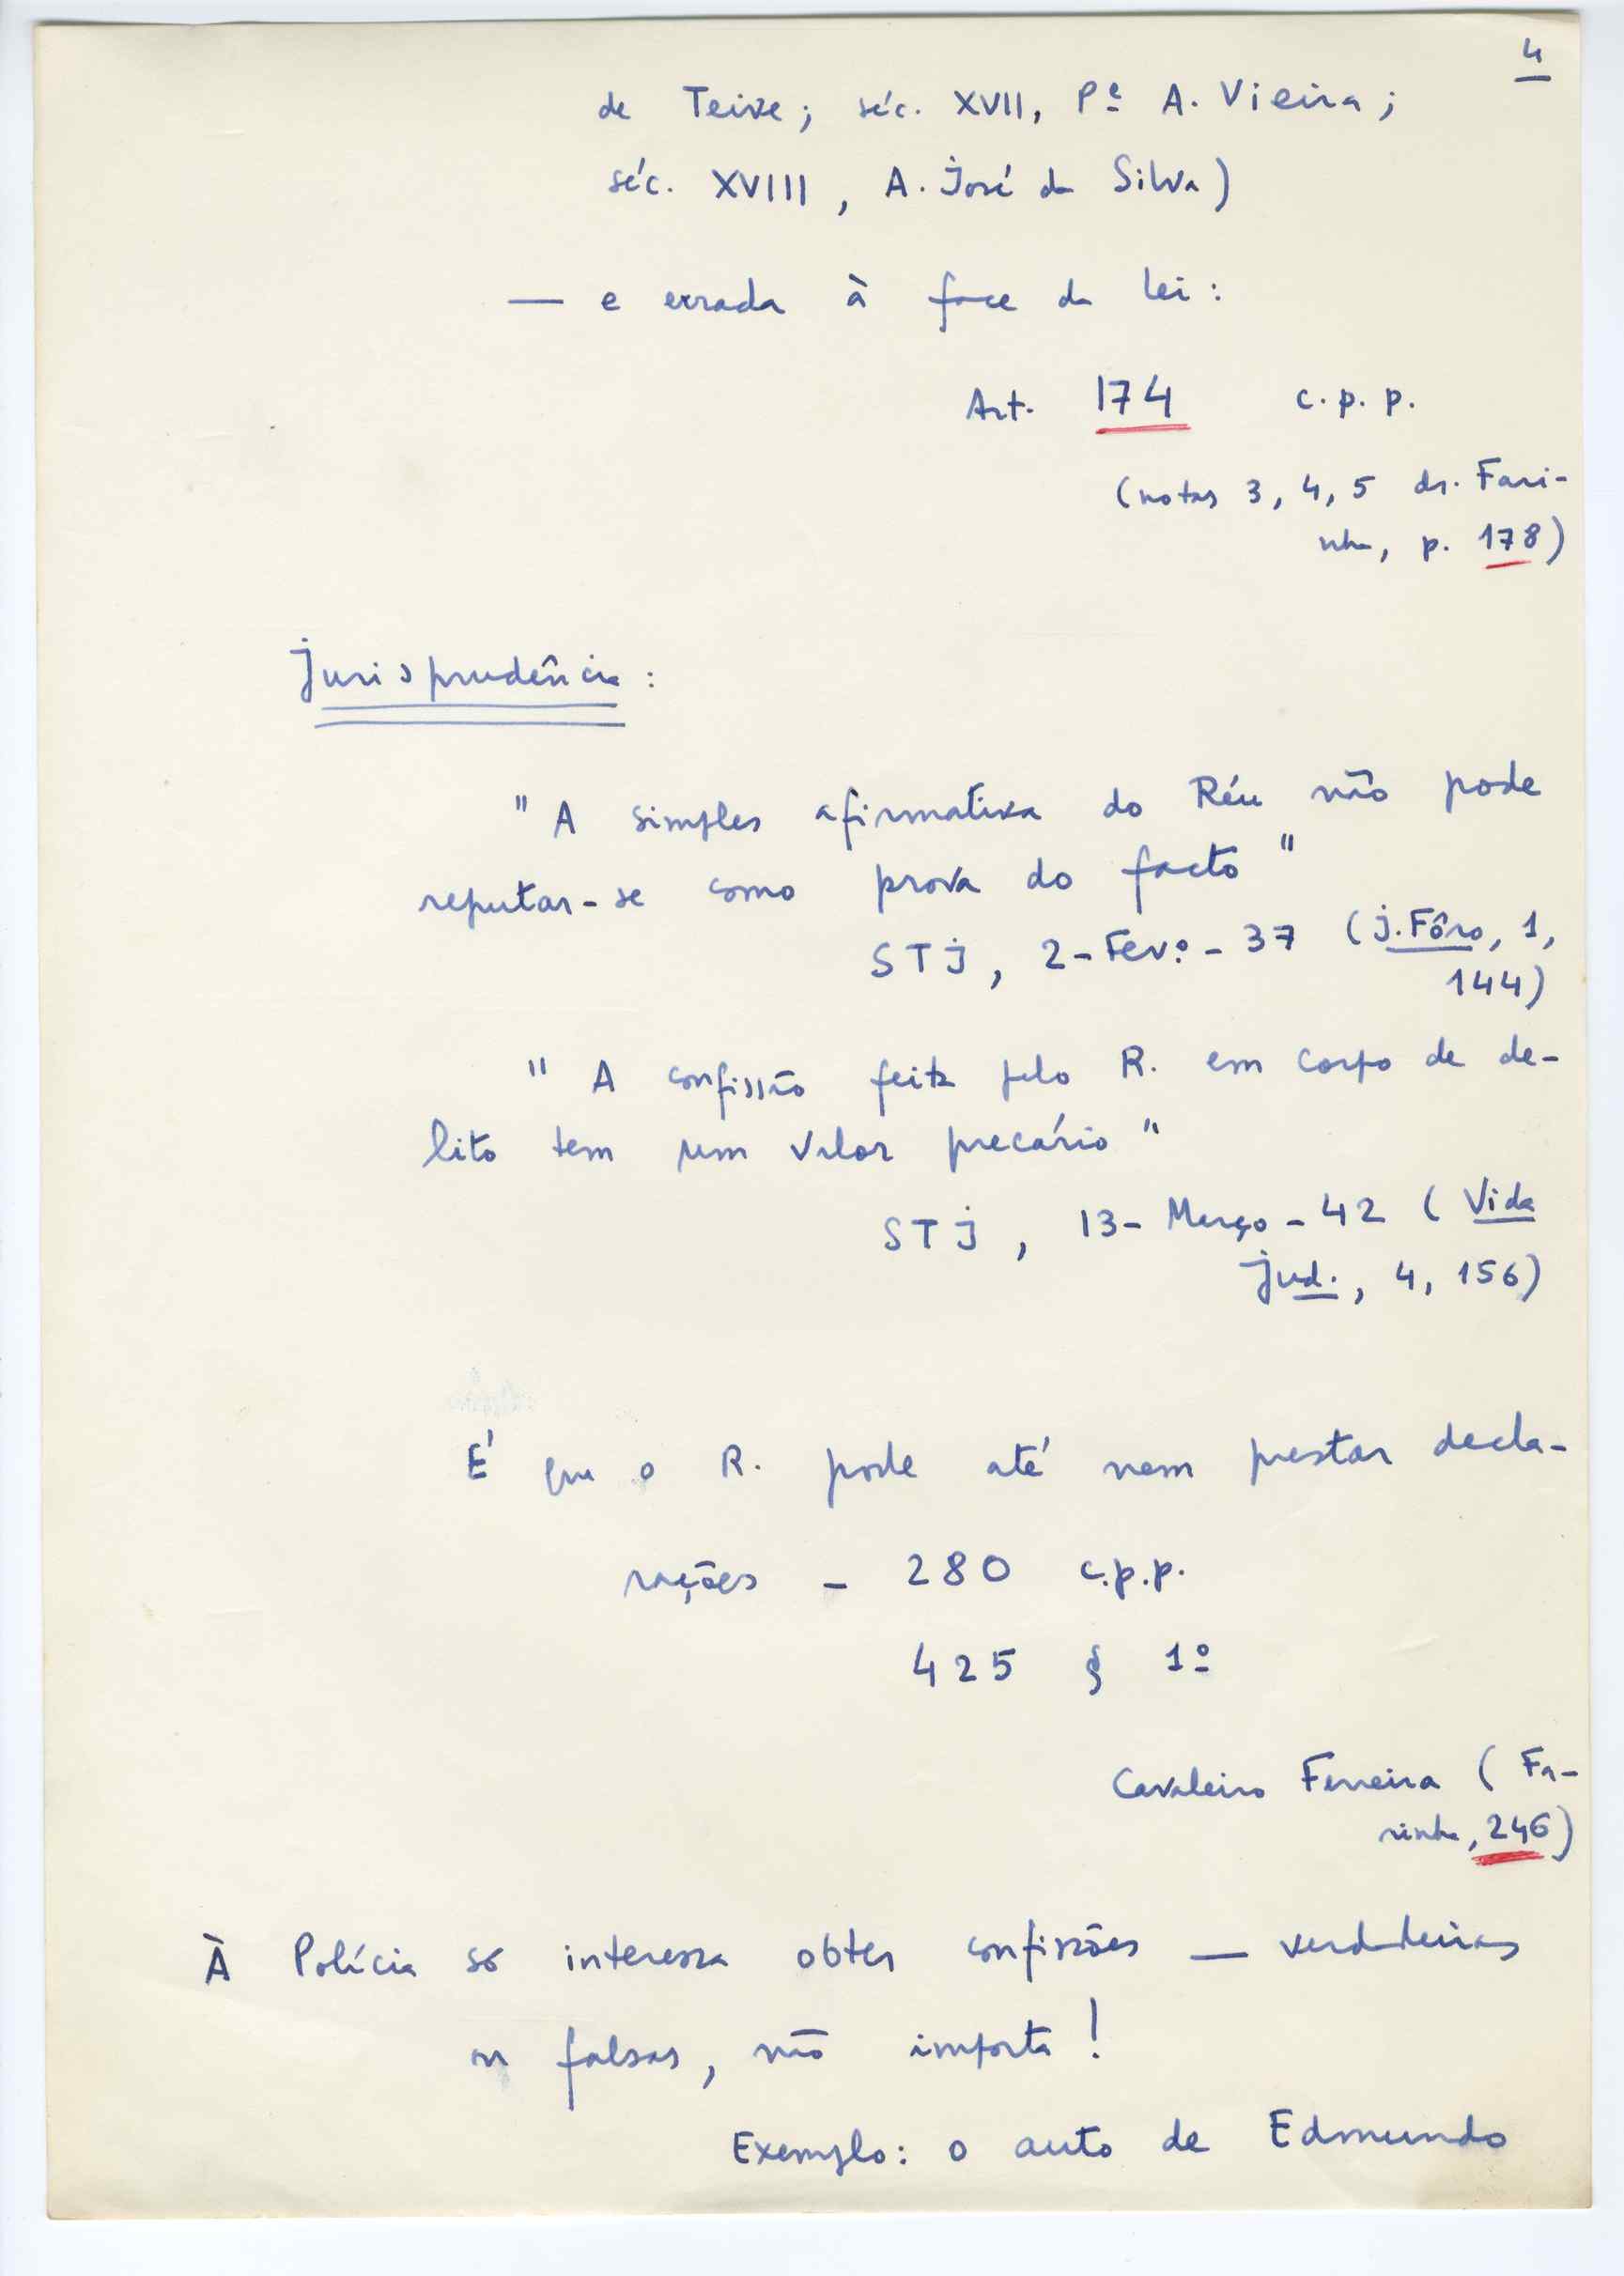 4
de Teive; séc. XVII, Pᵉ A. Vieira;
séc. XVIII, A. José da Silva)
— e errada à face da lei:
Art. 174 c.p.p.
(notas 3, 4, 5 dr. Fari-
nha, p. 178)
Jurisprudência:
"A simples afirmativa do Réu não pode
reputar-se como prova do facto"
STJ, 2-Fevº-37 (J. Fôro, 1,
144)
"A confissão feita pelo R. em corpo de de-
lito tem um valor precário"
STJ, 13-Março-42 (Vida
Jud., 4, 156)
É que o R. pode até nem prestar decla-
rações - 280 c.p.p.
425 § 1º
Cavaleiro Ferreira (Fa-
rinha, 246)
À Polícia só interessa obter confissões — verdadeiras
ou falsas, não importa!
Exemplo: o auto de Edmundo